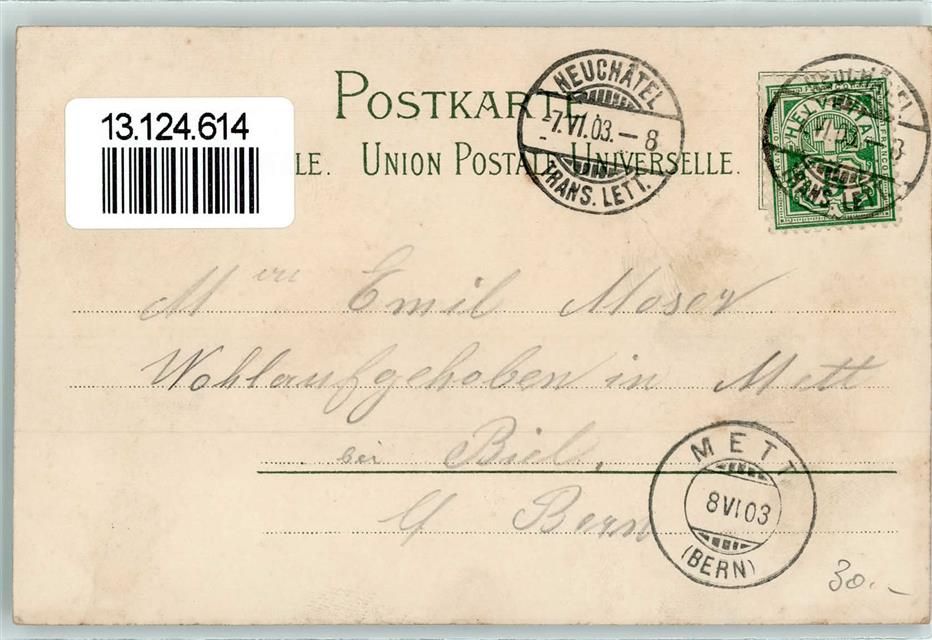 POSTKARTE
13.124.614
LLE. UNION POSTALE UNIVERSELLE.
NEUCHÂTEL
-7.VI.03.-8
TRANS. LETT.
NEUCHÂTEL
TRANS. LETT.
HELVETIA
Emil Moser
Wohlaufgehoben in Mett
bei Biel.
Bern
METT
8 VI 03
(BERN)
30.-